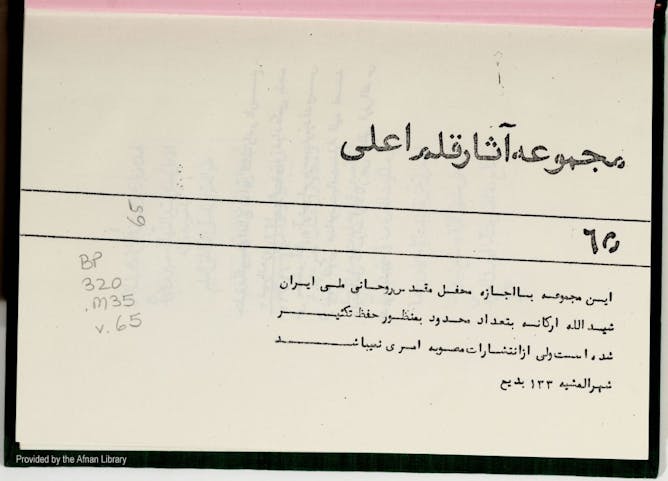 مجموعه آثار قلم اعلی
65
٦٥
BP
320
.M35
v.65
این مجموعه با اجازه محفل مقدس روحانی ملی ایران
شیدالله ارکانه بتعداد محدود بمنظور حفظ تکثیر
شده است ولی از انتشارات مصوبه امری نمیباشد
شهرالمشیه ۱۳۳ بدیع
Provided by the Afnan Library